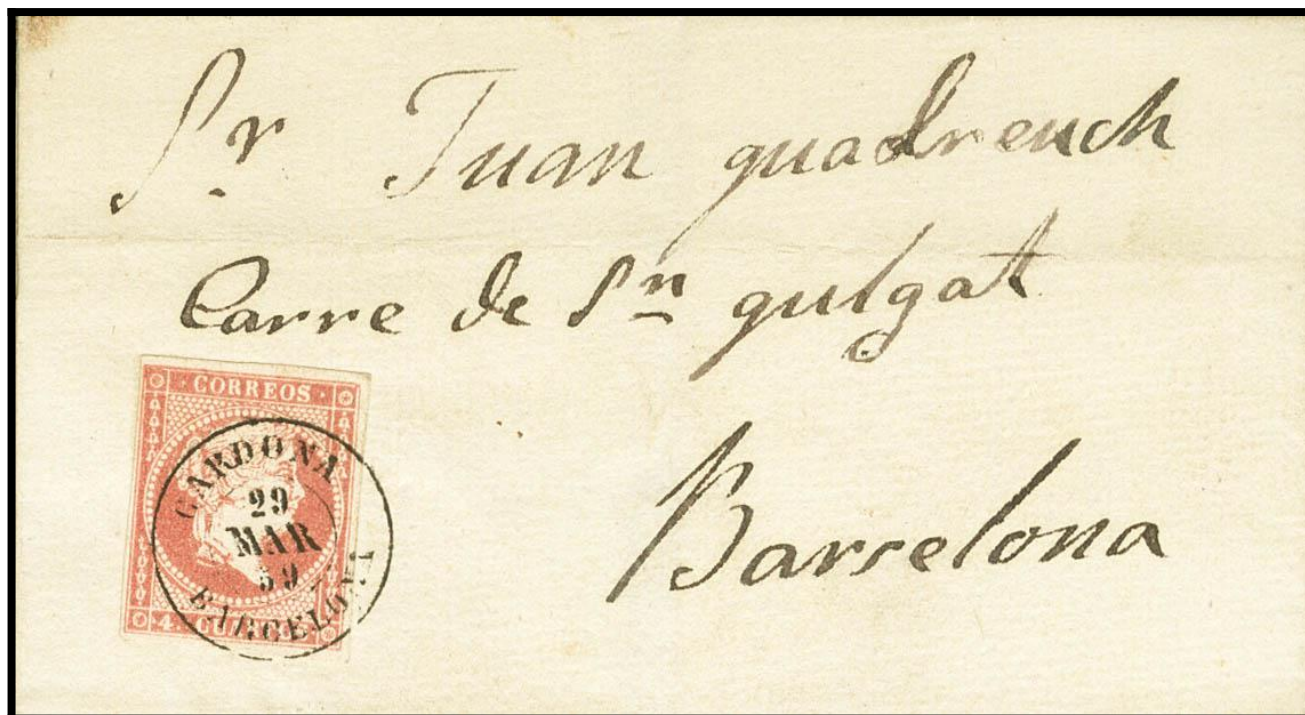 Sr Juan quadrench
Carre de Sn qulgat
Barcelona
CORREOS
CARDONA
29
MAR
59
BARCELONA
4 CU